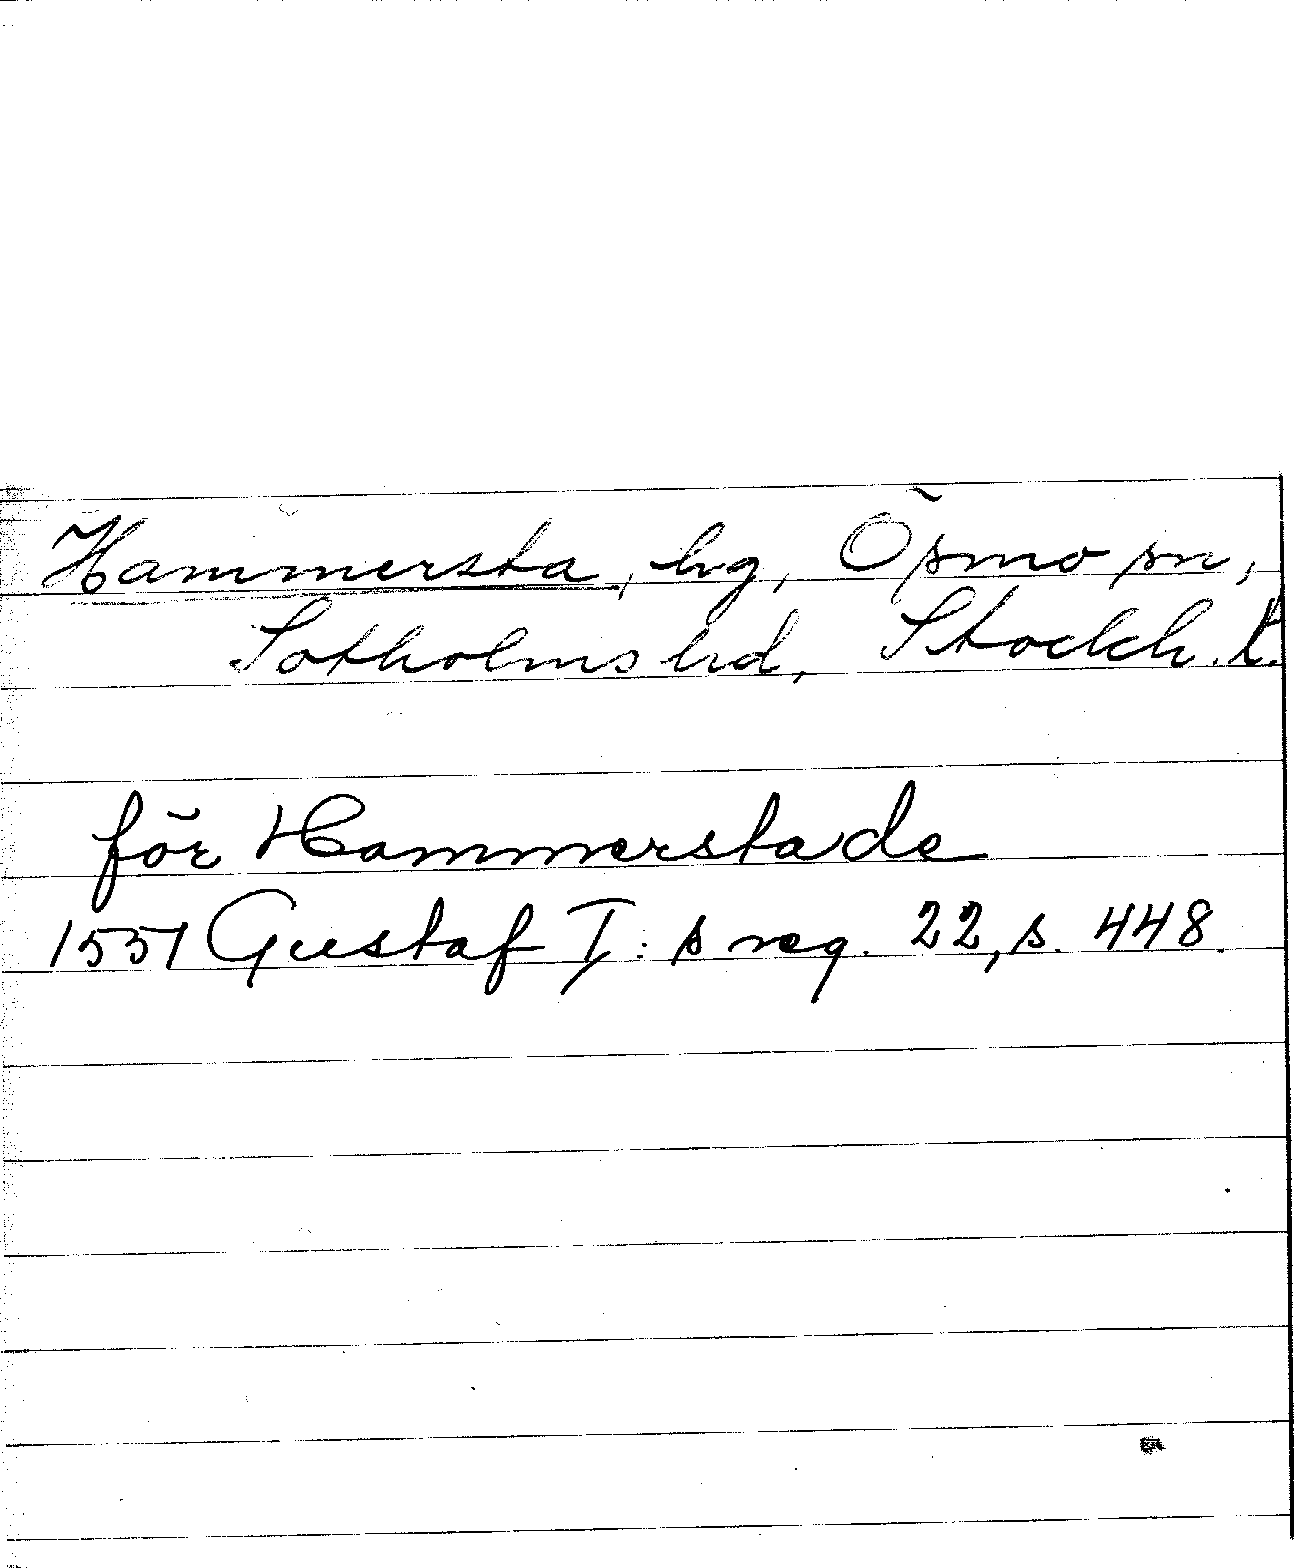 Hammersta, hg, Ösmo sn,
Sotholms hd, Stockh. l.
för Hammerstade
1551 Gustaf I: s reg. 22, s. 448.